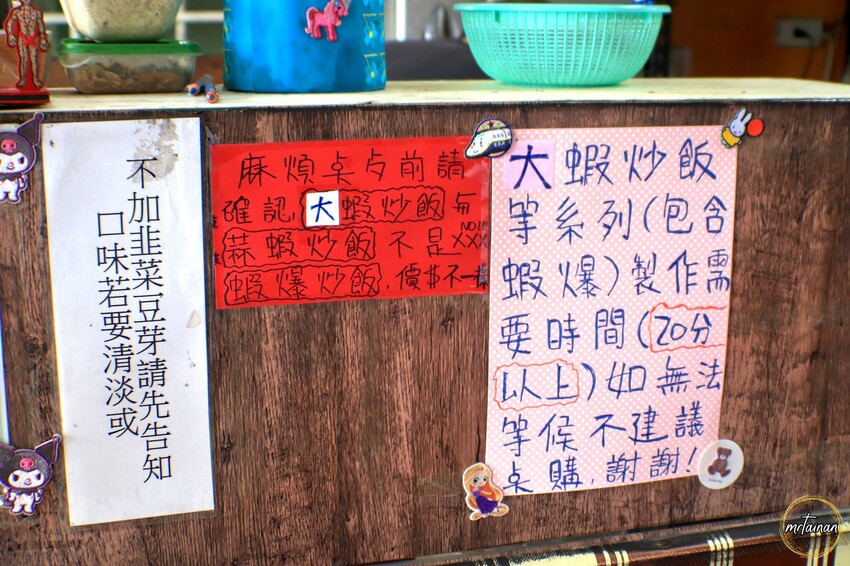 口味若要清淡或
不加韭菜豆芽請先告知
麻煩桌号前請
確認大蝦炒飯每
蒜蝦炒飯不是XXX
NO!!!
蝦爆炒飯,價$不一樣
大蝦炒飯
等系列(包含
蝦爆)製作需
要時間(20分
以上)如無法
等候不建議
桌購,謝謝!
mrtainan